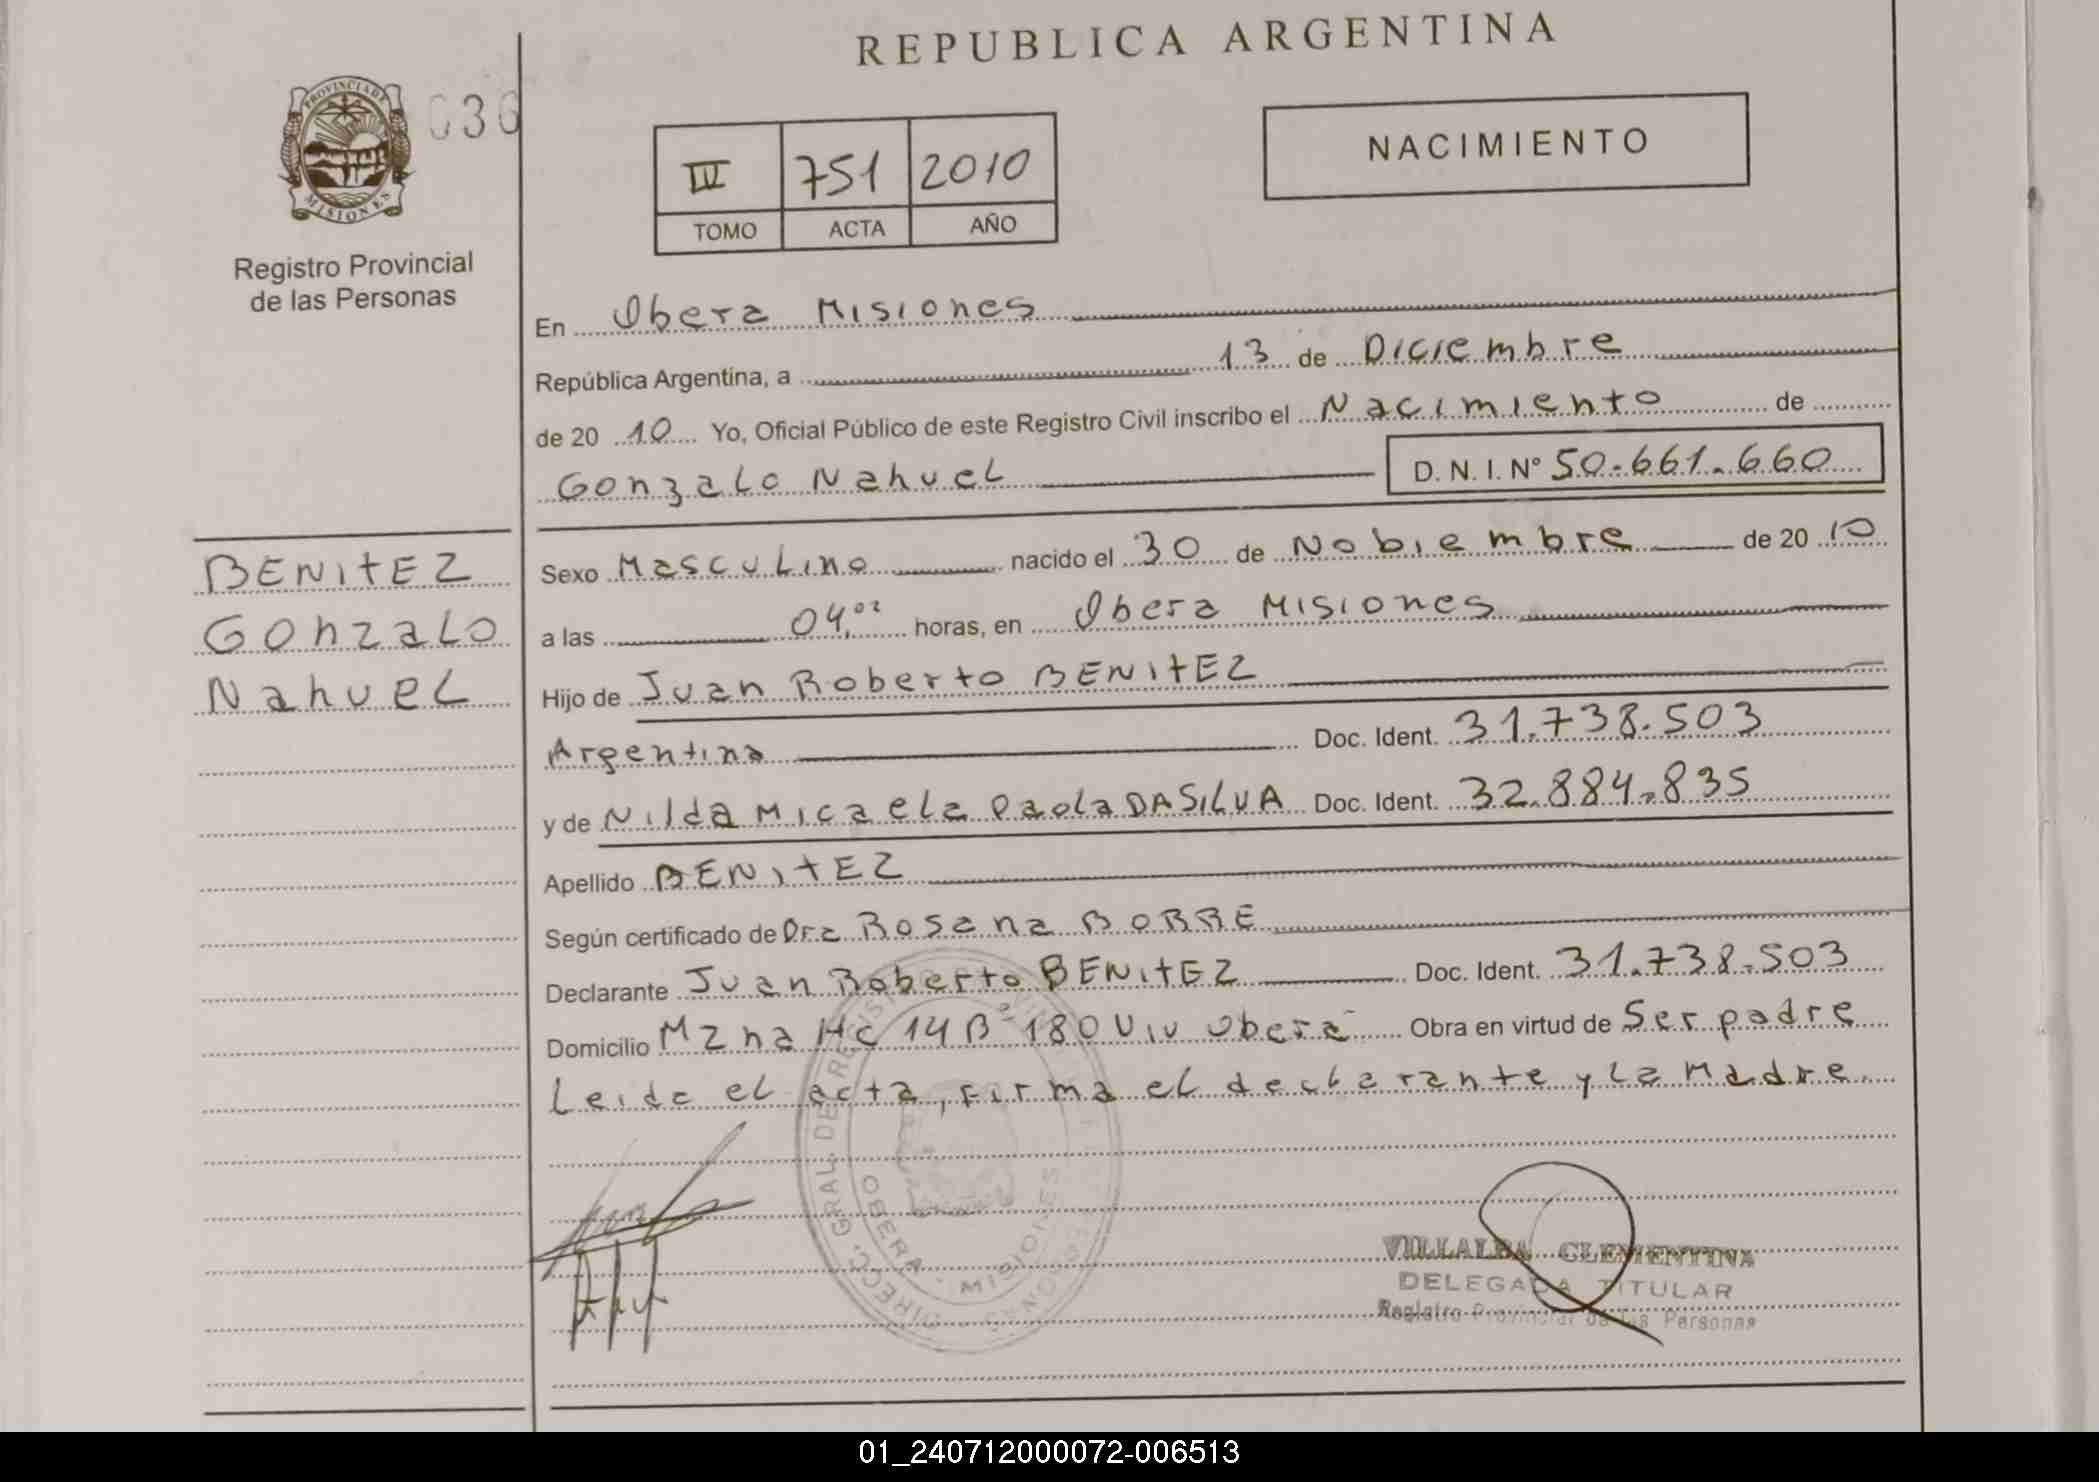 REPUBLICA ARGENTINA
PROVINCIA DE
MISIONES
Registro Provincial
de las Personas
NACIMIENTO
751 2010
TOMO ACTA AÑO
En Obera Misiones
República Argentina, a 13 de Diciembre
de 20 10 Yo, Oficial Público de este Registro Civil inscribo el Nacimiento de
Gonzalo Nahuel D. N. I. Nº 50.661.660
BENITEZ
Gonzalo
Nahuel
Sexo Masculino nacido el 30 de Nobiembre de 20 10
a las 04,02 horas, en Obera Misiones
Hijo de Juan Roberto BENITEZ
Argentina Doc. Ident. 31.738.503
y de Nilda Micaela Paola DA SILVA Doc. Ident. 32.884.835
Apellido BENITEZ
Según certificado de Dra Rosana BORRE
Declarante Juan Roberto BENITEZ Doc. Ident. 31.738.503
Domicilio Mzna Hc 14 Bº 180 Viv Obera Obra en virtud de Ser padre
Leida el acta, firma el declarante y La Madre.
OBERA - MISIONES
VILLALBA CLEMENTINA
DELEGADA TITULAR
Registro Provincial de las Personas
01_240712000072-006513